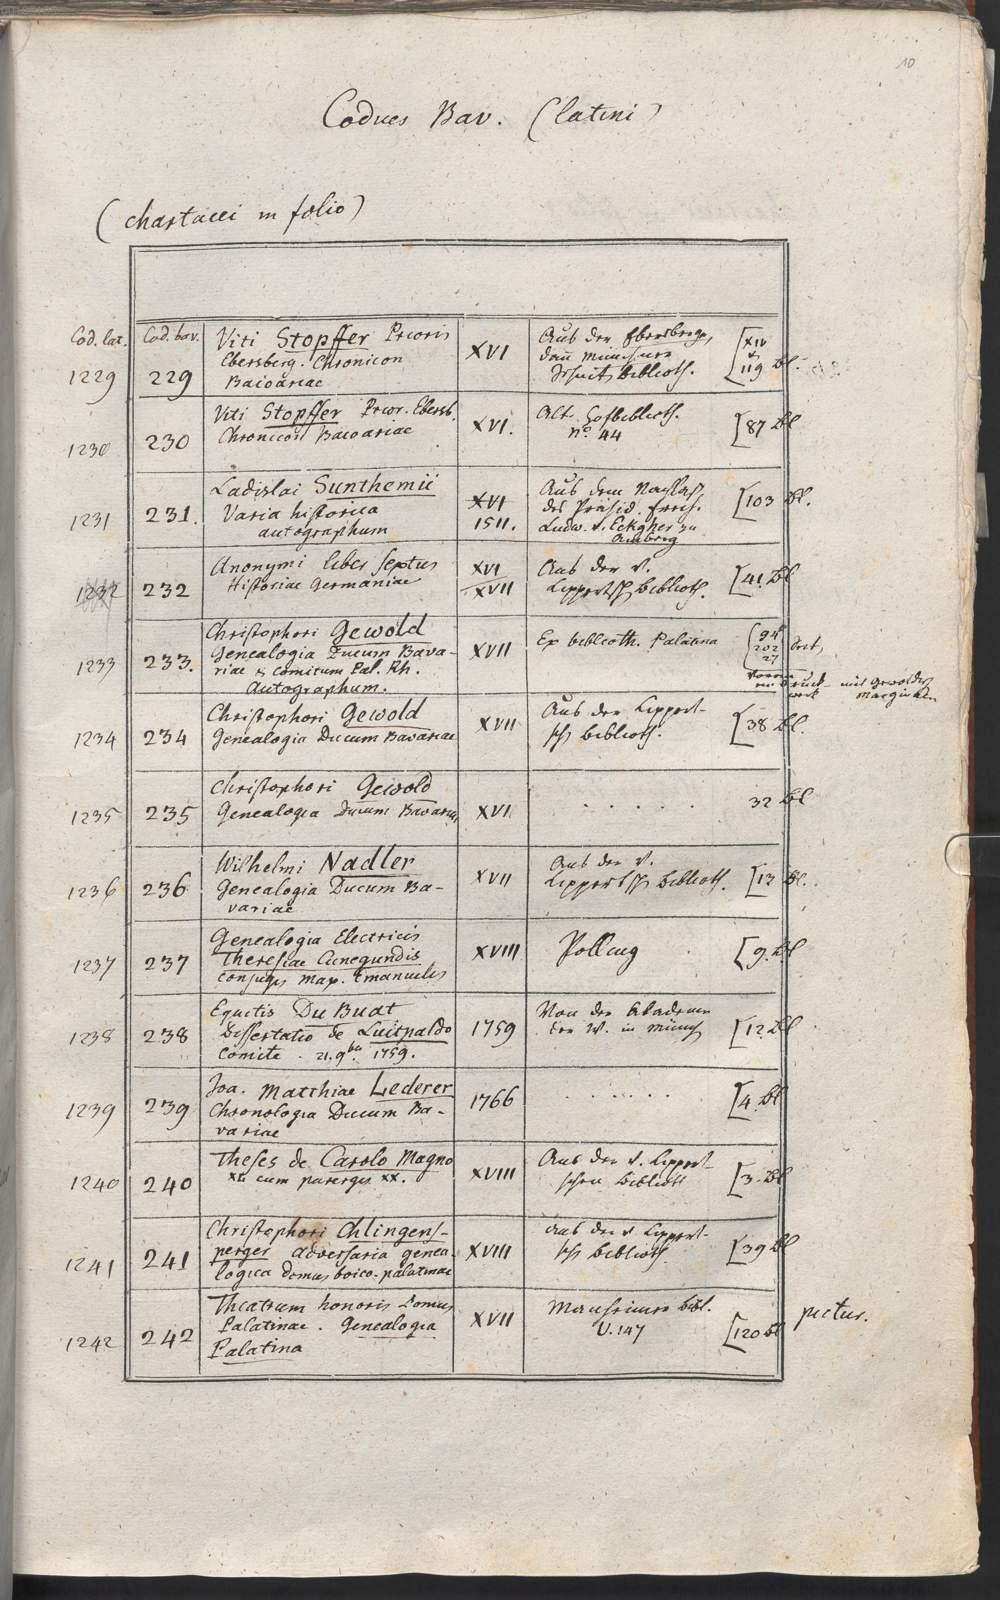 10
Codices Bav. (latini)
(chartacei in folio)
Cod. lat. Cod. bav. Viti Stopffer Prioris
Ebersberg. Chronicon
Baioariae
1229 229 XVI
Aus der Ebersberger,
dann Münchner
Jesuit. Biblioth.
[XIV
&
119 Bl.
Viti Stopffer Prior. Ebersb.
Chronicon Baioariae
1230 230 XVI.
Alt. Hofbiblioth.
no. 44
[87 Bl
Ladislai Sunthemii
Varia historica
autographum
1231 231. XVI
1511.
Aus dem Nachlaß
des Präsid. Freih.
Ludw. v. Eckher zu
Amberg
[103 Bl.
Anonymi liber septus
Historiae Germaniae
1232 232 XVI
XVII
Aus der v.
Lippertsch Biblioth.
[41. Bl
Christophori Gewold
Genealogia Ducum Bava-
riae & Comitum Pal. Rh.
Autographum.
1233 233. XVII
Ex biblioth. Palatina
94
202
27
Druck-
werk
mit Gewolds
Marginalien
Christophori Gewold
Genealogia Ducum Bavariae
1234 234 XVII
Aus der Lippert-
sch Biblioth.
[38 Bl.
Christophori Gewold
Genealogia Ducum Bavariae
1235 235 XVI
. . . . . .
32 Bl
Wilhelmi Nadler
Genealogia Ducum Ba-
variae
1236 236 XVII
Aus der v.
Lippertsch Biblioth.
[13 Bl.
Genealogia Electricis
Theresiae Cunegundis
conjugis Max. Emanuelis
1237 237 XVIII
Polling
[9. Bl
Equitis Du Buat
Dissertatio de Luitpaldo
Comite. 21. 9br. 1759.
1238 238 1759
Von der Akademie
der W. in Münch
[12. Bl
Joa. Matthiae Lederer
Chronologia Ducum Ba-
variae
1239 239 1766
. . . . . .
[4. Bl
Theses de Carolo Magno
XII cum parergis XX.
1240 240 XVIII
Aus der v. Lippert-
schen Biblioth
[3. Bl
Christophori Chlingens-
perger adversaria genea-
logica domus boico-palatinae
1241 241 XVIII
Aus der v. Lippert-
sch Biblioth.
[39 Bl
Theatrum honoris Domus
Palatinae. Genealogia
Palatina
1242 242 XVII
Manheimer Bibl.
U.147
[120 Bl
pictur.